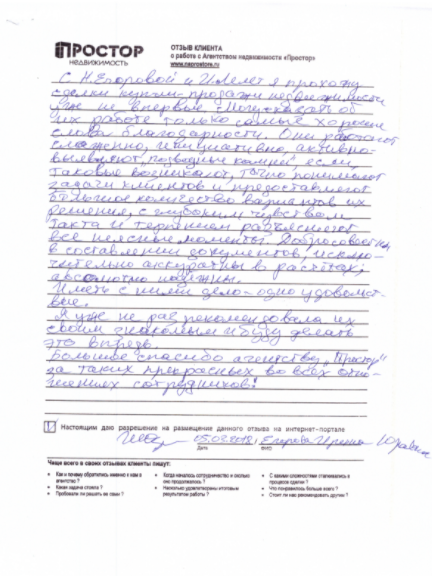 ПРОСТОР
НЕДВИЖИМОСТЬ
ОТЗЫВ КЛИЕНТА
о работе с Агентством недвижимости «Простор»
www.naprostore.ru
С Н.Егоровой и И.Мелет я прохожу
сделки купли-продажи недвижимости
уже не впервые. Могу сказать об
их работе только самые хорошие
слова благодарности. Они работают
слаженно, инициативно, активно
выявляют "подводные камни", если
таковые возникают, точно понимают
задачи клиентов и предоставляют
большое количество вариантов их
решения, с глубоким чувством
такта и терпением разъясняют
все неясные моменты. Добросовестны
в составлении документов, исклю-
чительно аккуратны в расчётах,
абсолютно надёжны.
Иметь с ними дело - одно удовольст-
вие.
Я уже не раз рекомендовала их
своим знакомым и буду делать
это впредь.
Большое спасибо агентству "Простор"
за таких прекрасных во всех отно-
шениях сотрудников!
Настоящим даю разрешение на размещение данного отзыва на интернет-портале
05.03.2018, Егорова Ирина
Дата ФИО
Чаще всего в своих отзывах клиенты пишут:
• Как и почему обратились именно к нам в агентство?
• Какая задача стояла?
• Пробовали ли решать ее сами?
• Когда началось сотрудничество и сколько оно продолжалось?
• Насколько удовлетворены итоговым результатом работы?
• С какими сложностями сталкивались в процессе сделки?
• Что понравилось больше всего?
• Стоит ли нас рекомендовать другим?